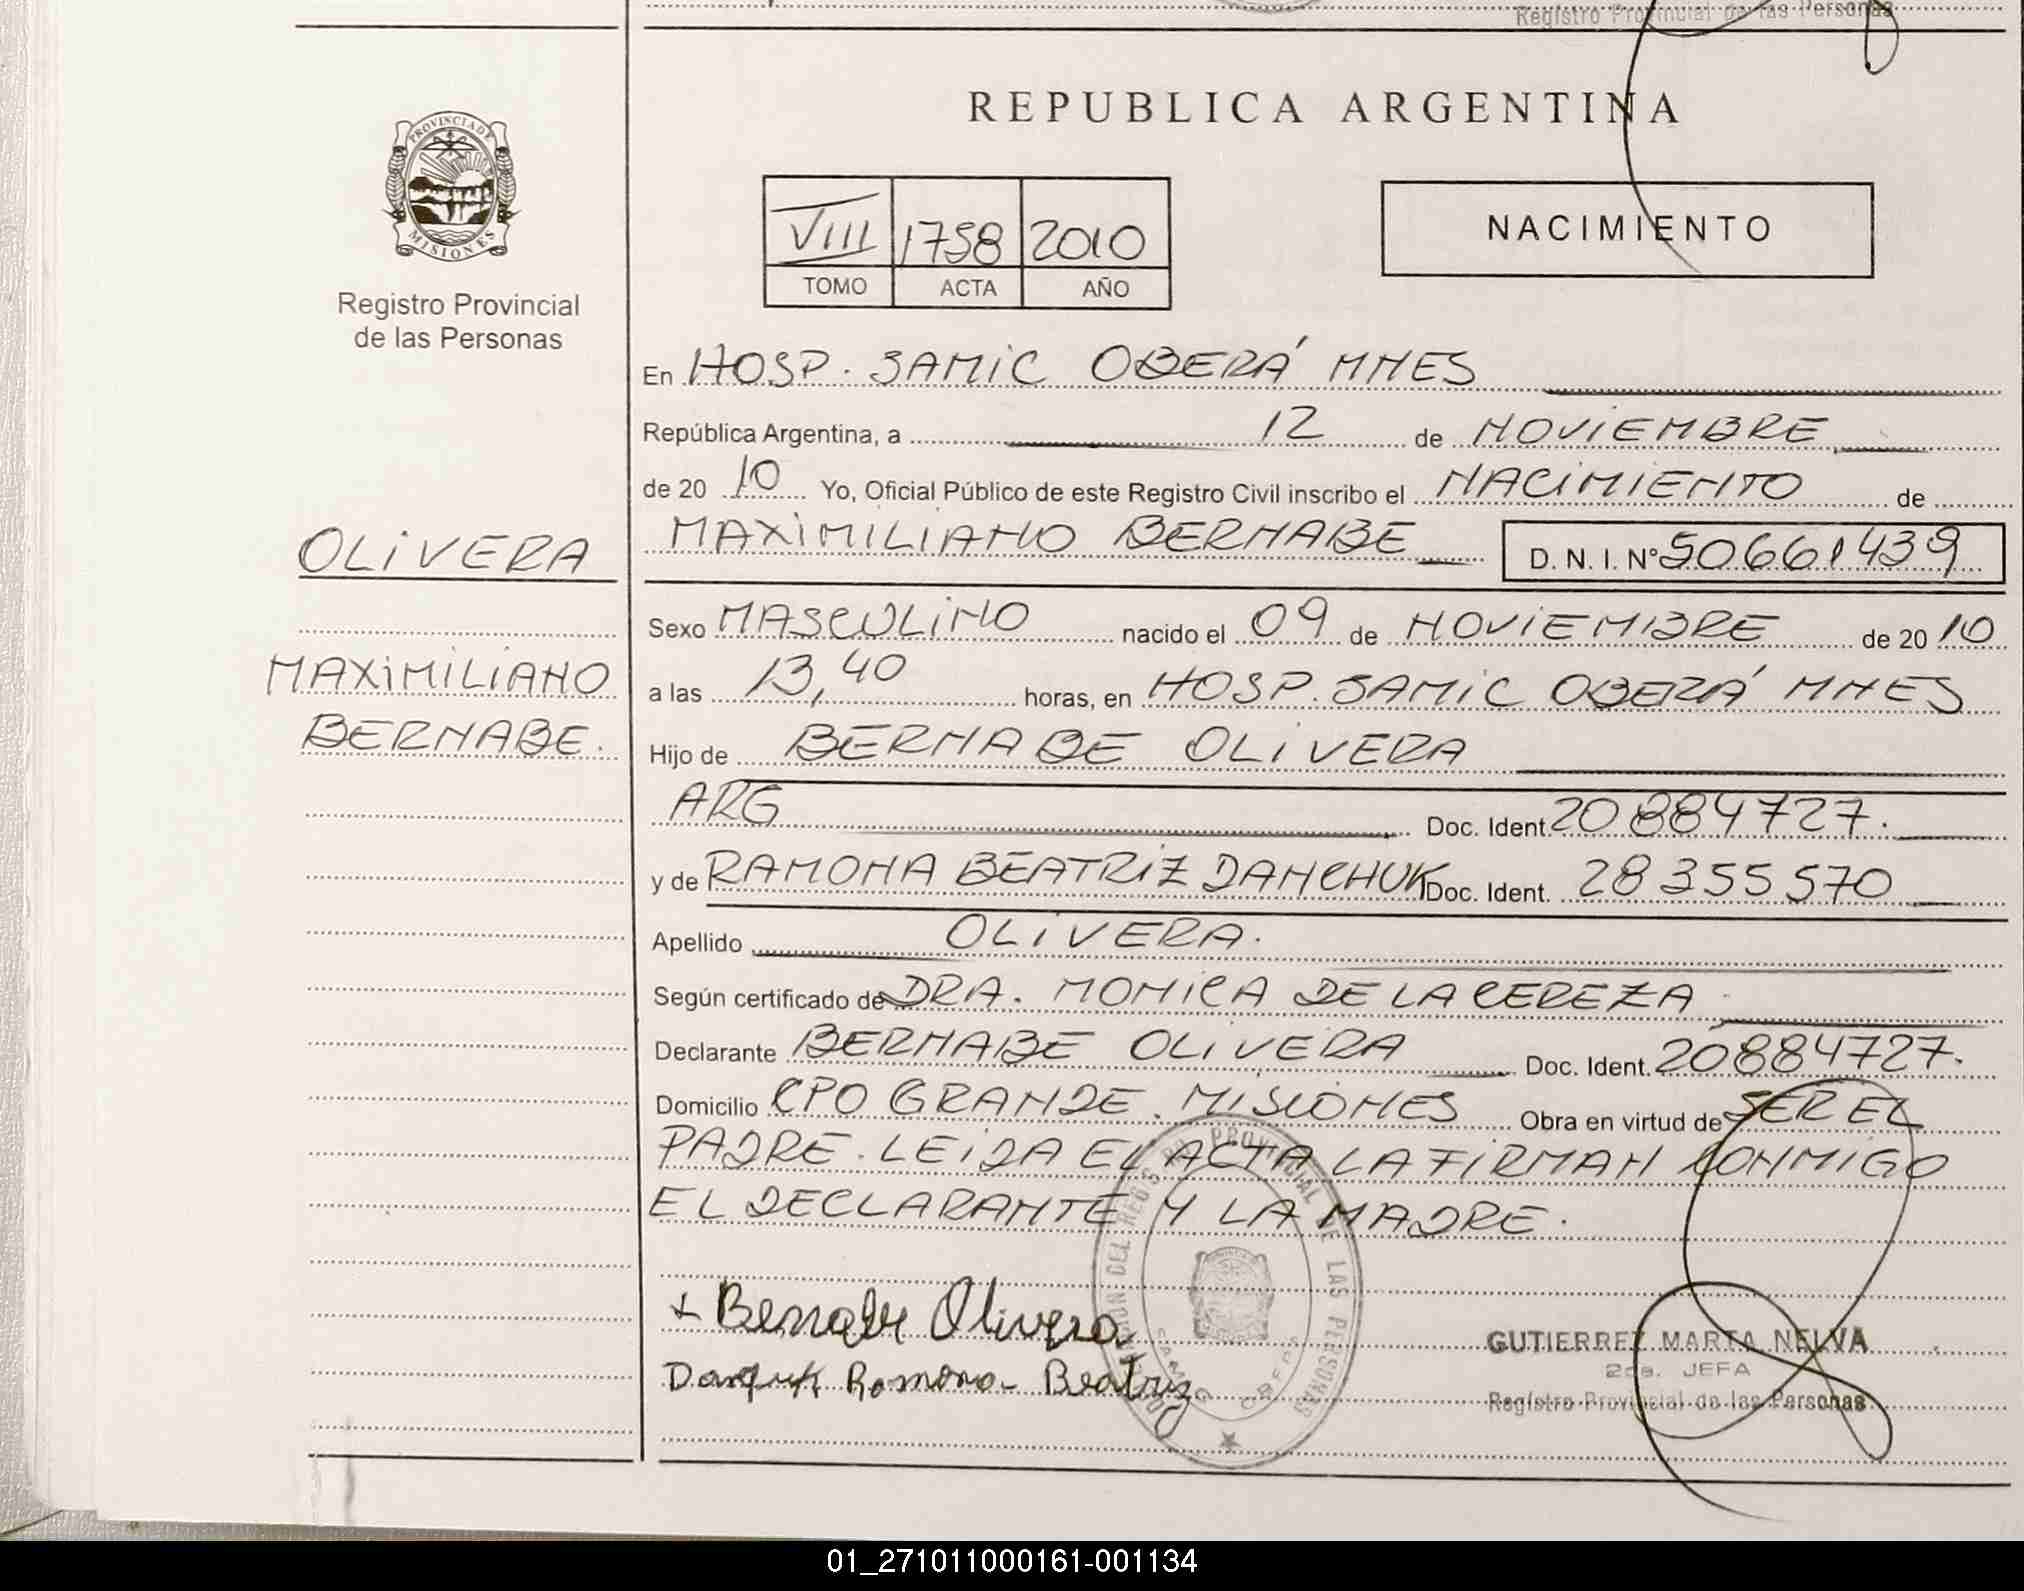 Registro Provincial de las Personas
REPUBLICA ARGENTINA
PROVINCIA DE
MISIONES
Registro Provincial
de las Personas
VIII 1758 2010
TOMO ACTA AÑO
NACIMIENTO
En HOSP. SAMIC OBERÁ MNES
República Argentina, a 12 de NOVIEMBRE
de 20 10 Yo, Oficial Público de este Registro Civil inscribo el NACIMIENTO de
MAXIMILIANO BERNABE D. N. I. Nº 50661439
OLIVERA
MAXIMILIANO
BERNABE.
Sexo MASCULINO nacido el 09 de NOVIEMBRE de 20 10
a las 13,40 horas, en HOSP. SAMIC OBERÁ MNES
Hijo de BERNABE OLIVERA
ARG Doc. Ident 20884727.
y de RAMONA BEATRIZ DANCHUK Doc. Ident. 28355570
Apellido OLIVERA.
Según certificado de DRA. MONICA DE LA CEREZA
Declarante BERNABE OLIVERA Doc. Ident. 20884727.
Domicilio CPO GRANDE. MISIONES Obra en virtud de SER EL
PADRE. LEIDA EL ACTA LA FIRMAN CONMIGO
EL DECLARANTE Y LA MADRE.
+ Bernabe Olivera
Ramona Beatriz
GUTIERREZ MARTA NELVA
2da. JEFA
Registro Provincial de las Personas
01_271011000161-001134